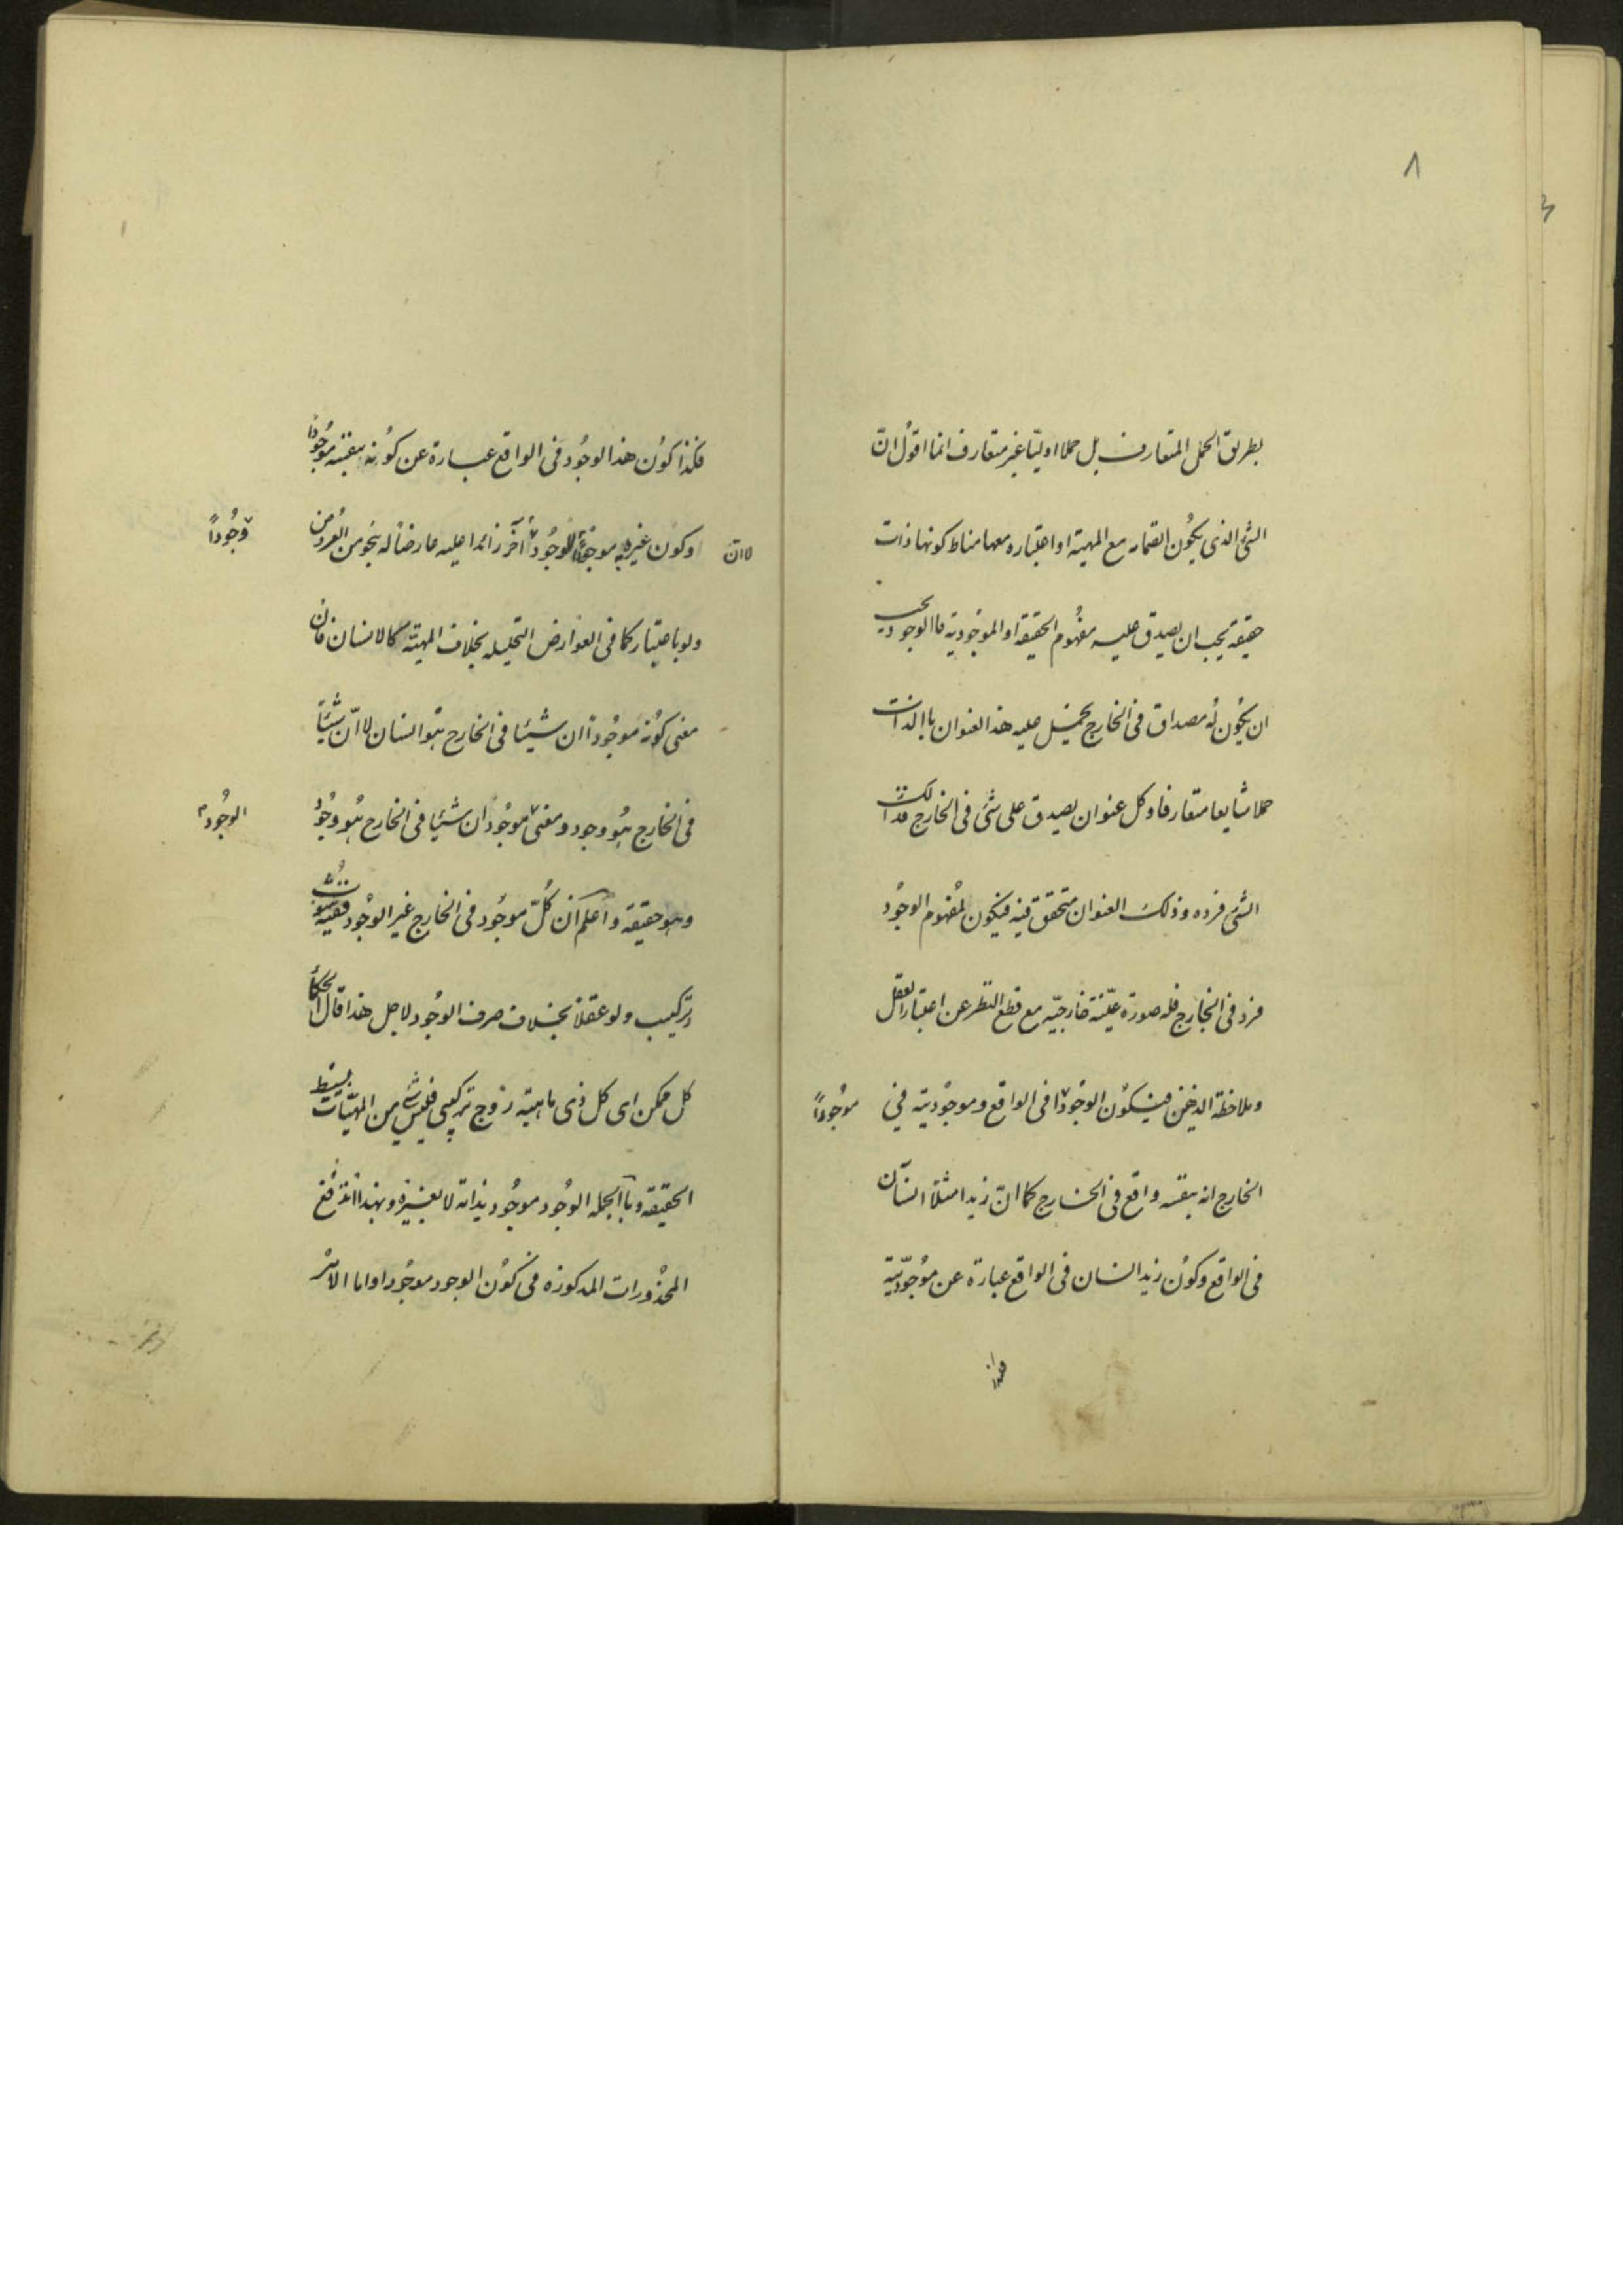 ٨
بطريق الحمل المتعارف بل حملا اوليّا غير متعارف انما اقول انّ
الشئ الذى يكون انضمامه مع المهية او اعتباره معها مناط كونها ذات
حقيقة يجب ان يصدق عليه مفهوم الحقيقة او الموجودية فاالوجود يجب
ان يكون له مصداق فى الخارج يحمل عليه هذا العنوان باالذات
حملا شايعا متعارفا و كل عنوان يصدق على شئ فى الخارج فذالك
الشئ فرده و ذلك العنوان متحقق فيه فيكون لمفهوم الوجود
فرد فى الخارج فله صورة عينية خارجيّه مع قطع النظر عن اعتبار العقل
و ملاحظة الذهن فيكون الوجود فى الواقع و موجوديته فى
موجوداً
الخارج انه بنفسه واقع فى الخارج كما انّ زيدا مثلا انسان
فى الواقع و كون زيد انسان فى الواقع عبارة عن موجوديّته
فهذا
فكذا كون هذا الوجود فى الواقع عبارة عن كونه بنفسه موجودا
لا انّ
او كون غيره به موجودا للوجود آخر زائدا عليه عارضا له بنحو من العروض
وجوداً
و لو باعتبار كما فى العوارض التحليله بخلاف المهيّة كالانسان فان
معنى كونه موجودا ان شيئا فى الخارج هو انسان لا انّ شيئاً
فى الخارج هو وجود و معنى موجود ان شيئا فى الخارج هو وجود
الوجود
و هو حقيقة و اعلم ان كلّ موجود فى الخارج غير الوجود ففيه شوب
تركيب و لو عقلا بخلاف صرف الوجود لاجل هذا قال الحكما
كل ممكن اى كل ذى ماهية زوج تركيبى فليس شئ من المهيّات بسيط
الحقيقة و باالجمله الوجود موجود بذاته لا بغيره و بهذا اندفع
المحذورات المذكوره فى كون الوجود موجودا و اما الامر